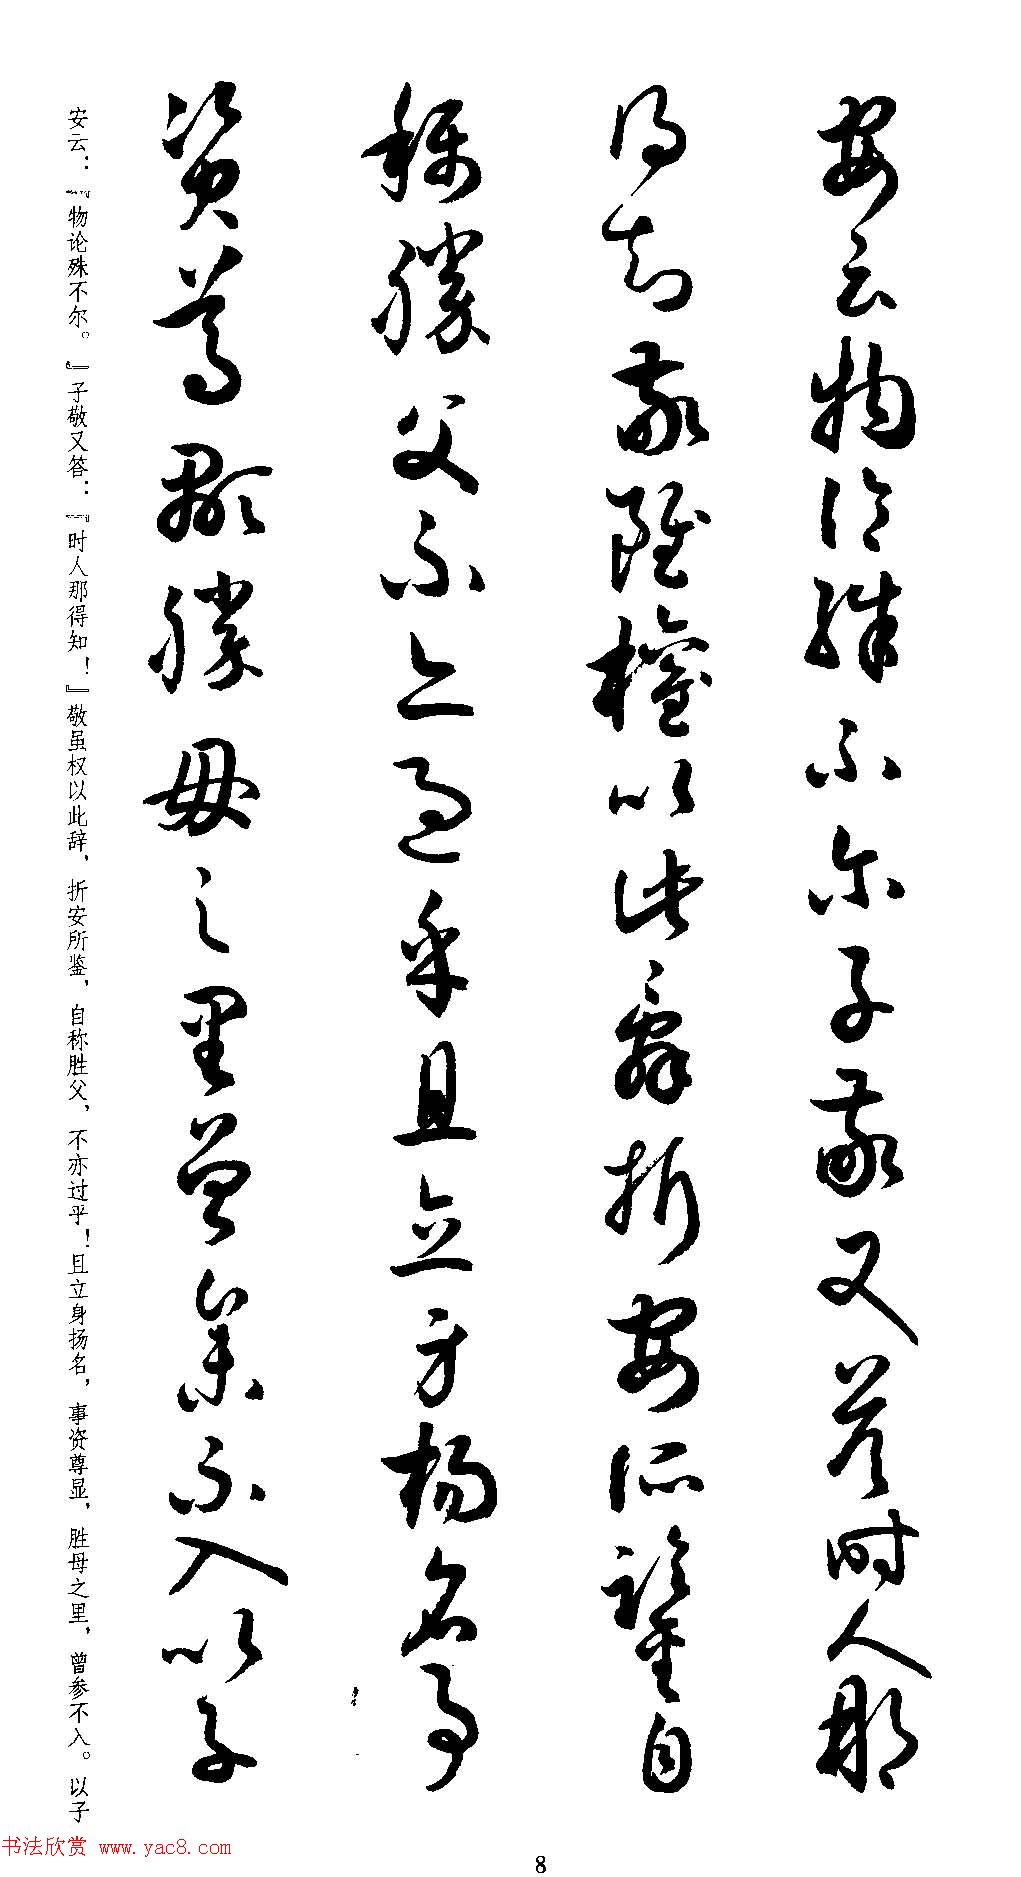 安云物论殊不尔子敬又答时人那
得知敬雖權以此辭折安所鍳自
稱勝父不亦過乎且立身揚名事
資尊顯勝母之里曾参不入以子
安云：『物论殊不尔。』子敬又答：『时人那得知！』敬虽权以此辞，折安所鉴，自称胜父，不亦过乎！且立身扬名，事资尊显，胜母之里，曾参不入。以子
书法欣赏 www.yac8.com
8